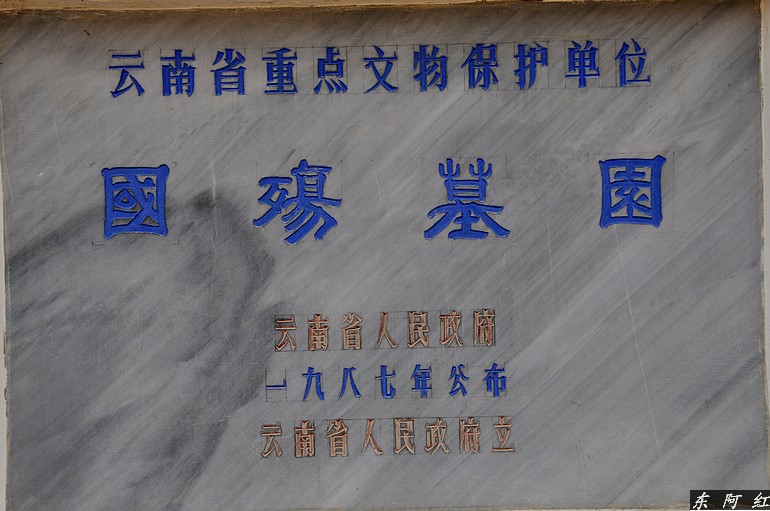 云南省重点文物保护单位
國殤墓園
云南省人民政府
一九八七年公布
云南省人民政府立
东阿红